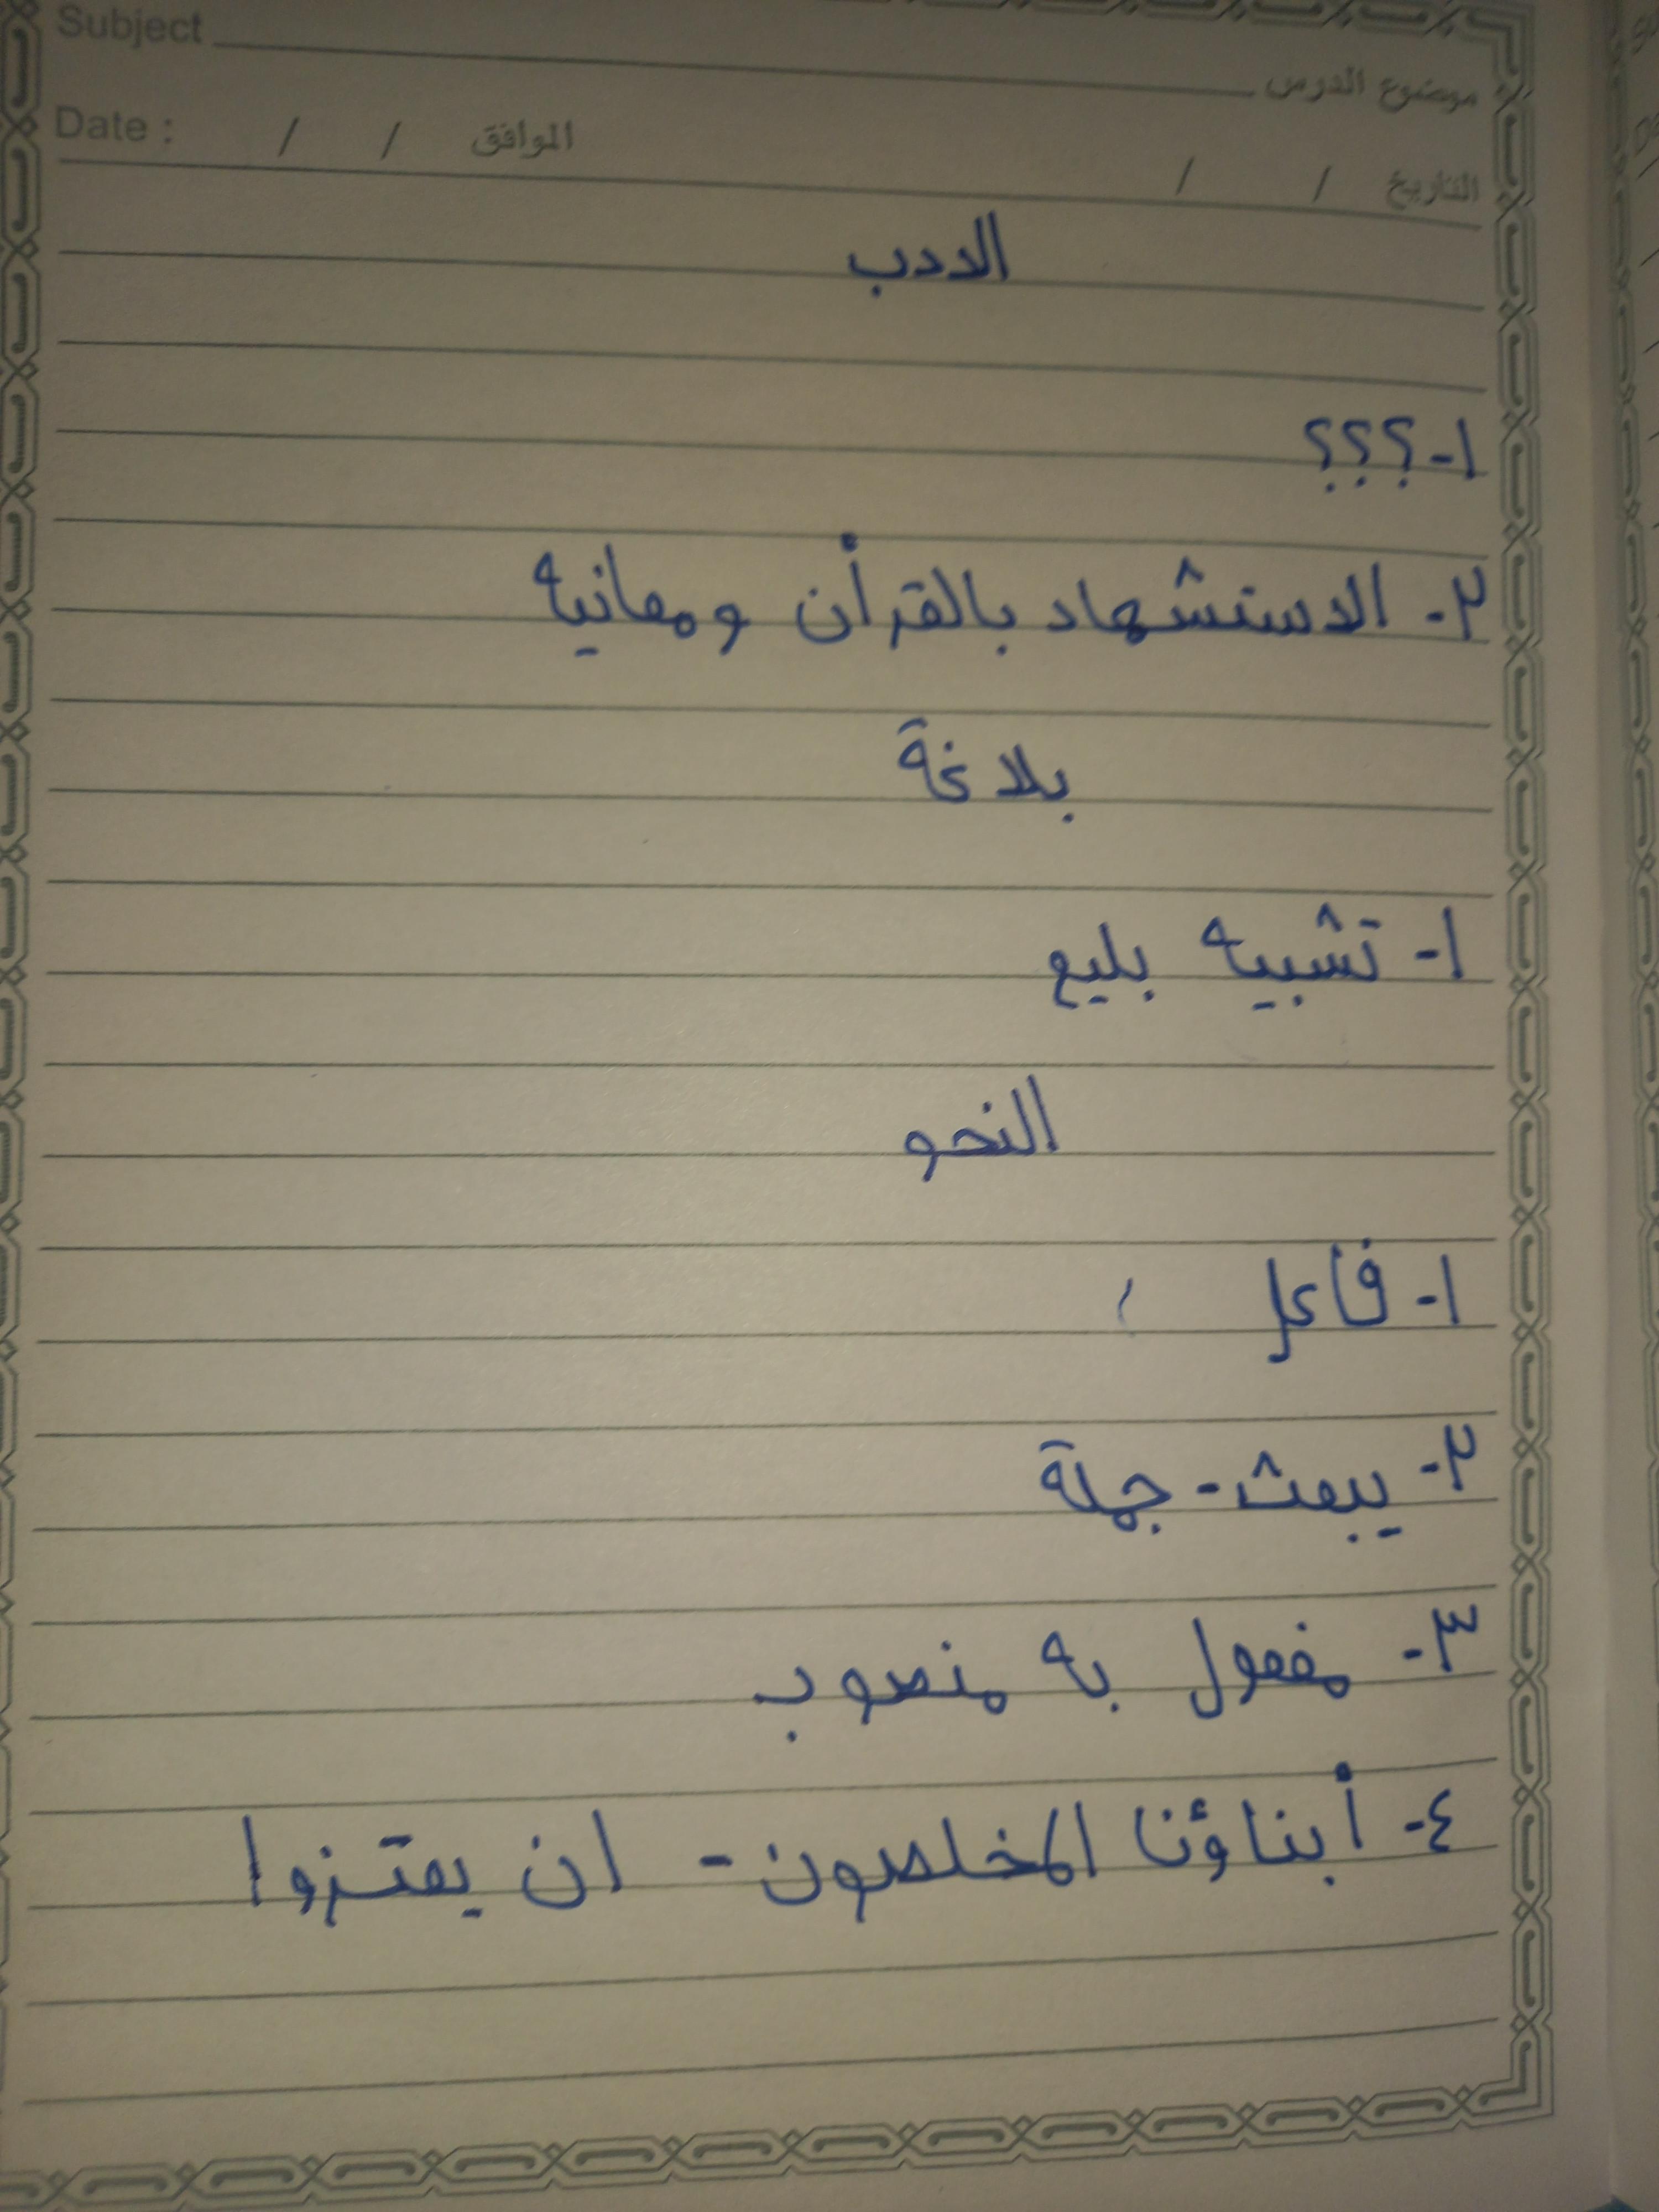 Subject موضوع الدرس
Date : / / الموافق / / التاريخ
الادب
١- ؟؟؟
٢- الاستشهاد بالقرأن ومعانيه
بلاغة
١- تشبيه بليع
النحو
١- فاعل
٢- يبعث - جملة
٣- مفعول به منصوب
٤- أبناؤنا المخلصون - ان يعتزوا